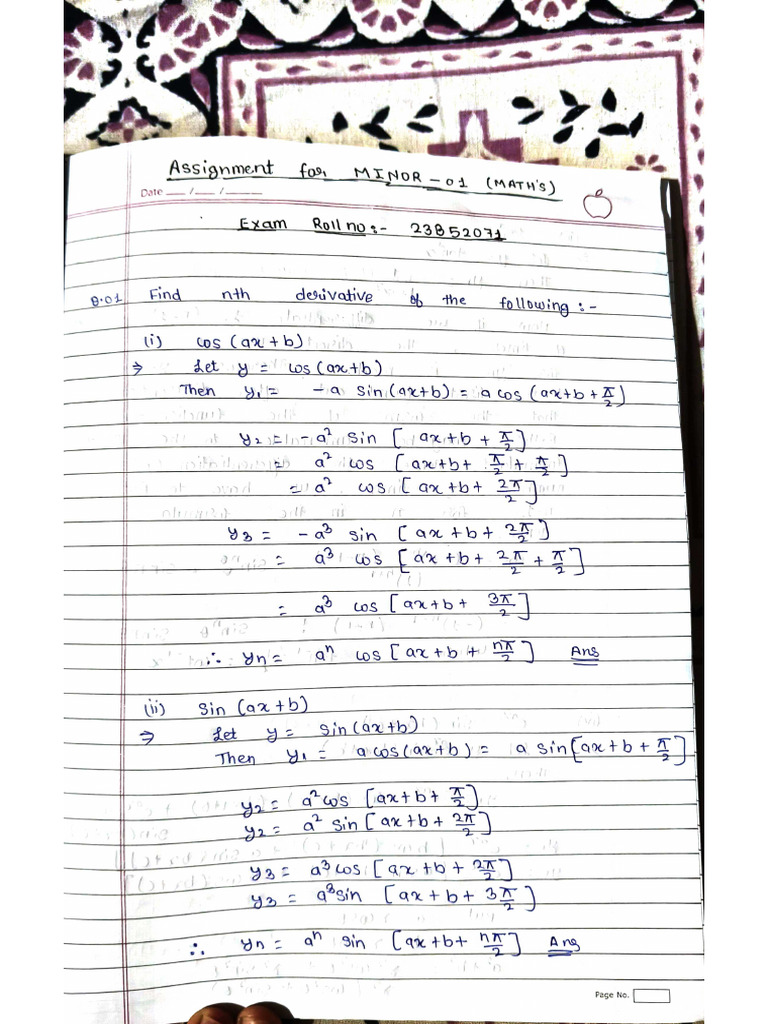 Assignment for MINOR-01 (MATH'S)
Date __/__/____
Exam Roll no:- 23852071
Q.01 Find nth derivative of the following :-
(i) cos (ax+b)
⇒ Let y = cos(ax+b)
Then y₁ = -a sin(ax+b) = a cos(ax+b+π/2)
y₂ = -a² sin [ax+b+π/2]
= a² cos [ax+b+ π/2 + π/2]
= a² cos [ax+b+ 2π/2]
y₃ = -a³ sin [ax+b+ 2π/2]
= a³ cos [ax+b+ 2π/2 + π/2]
= a³ cos [ax+b+ 3π/2]
∴ yn = aⁿ cos [ax+b+ nπ/2] Ans
(ii) sin (ax+b)
⇒ Let y = sin(ax+b)
Then y₁ = a cos(ax+b) = a sin[ax+b+π/2]
y₂ = a² cos [ax+b+ π/2]
y₂ = a² sin [ax+b+ 2π/2]
y₃ = a³ cos [ax+b+ 2π/2]
y₃ = a³ sin [ax+b+ 3π/2]
∴ yn = aⁿ sin [ax+b+ nπ/2] Ans
Page No.